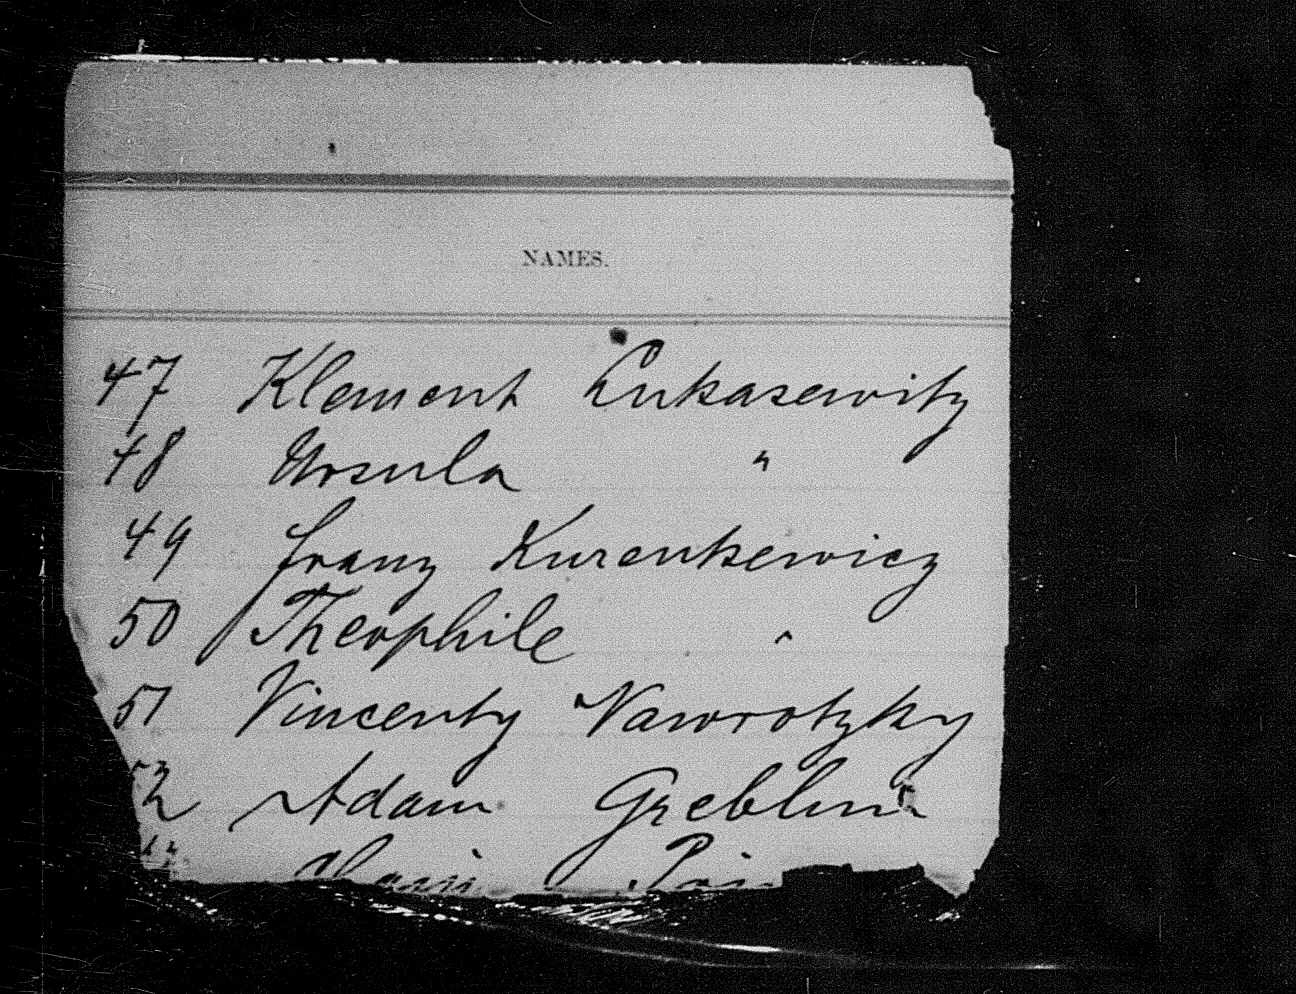 NAMES.
47 Klement Lukasewitz
48 Ursula "
49 Franz Kurenkewicz
50 Theophile "
51 Vincenty Nawrotzky
52 Adam